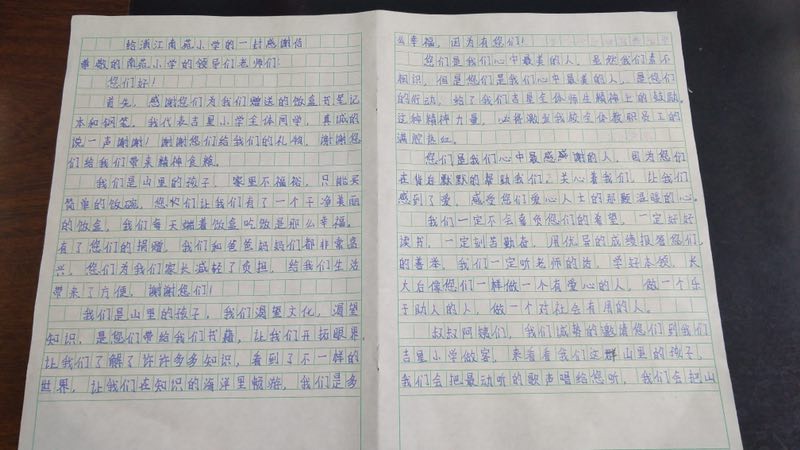 给浙江南苑小学的一封感谢信
尊敬的南苑小学的领导们老师们:
您们好!
首先,感谢您们为我们赠送的饭盒书笔记
本和钢笔,我代表吉星小学全体同学,真诚的
说一声谢谢!谢谢您们给我们的礼物,谢谢您
们给我们带来精神食粮。
我们是山里的孩子,家里不富裕,只能买
简单的饭碗,您们让我们有了一个干净美丽
的饭盒,我们每天端着饭盒吃饭是那么幸福。
有了您们的捐赠,我们和爸爸妈妈们都非常高
兴,您们为我们家长减轻了负担,给我们生活
带来了方便,谢谢您们!
我们是山里的孩子,我们渴望文化,渴望
知识,是您们带给我们书籍,让我们开拓眼界,
让我们了解了许许多多知识,看到了不一样的
世界,让我们在知识的海洋里畅游,我们是多
么幸福,因为有您们!
您们是我们心中最美的人,虽然我们素不
相识,但是您们是我们心中最美的人,是您们
的行动,给了我们吉星全体师生精神上的鼓励。
这种精神力量,必将激发我校全体教职员工的
满腔热血。
您们是我们心中最感感谢的人,因为您们
在背后默默的帮助我们,关心着我们,让我们
感到了爱,感受您们爱心人士的那颗温暖的心。
我们一定不会辜负您们的希望,一定好好
读书,一定刻苦勤奋,用优异的成绩报答您们
的善举,我们一定听老师的话,学好本领,长
大后像您们一样做一个有爱心的人,做一个乐
于助人的人,做一个对社会有用的人。
叔叔阿姨们,我们诚挚的邀请您们到我们
吉星小学做客,来看看我们这群山里的孩子,
我们会把最动听的歌声唱给您听,我们会把山